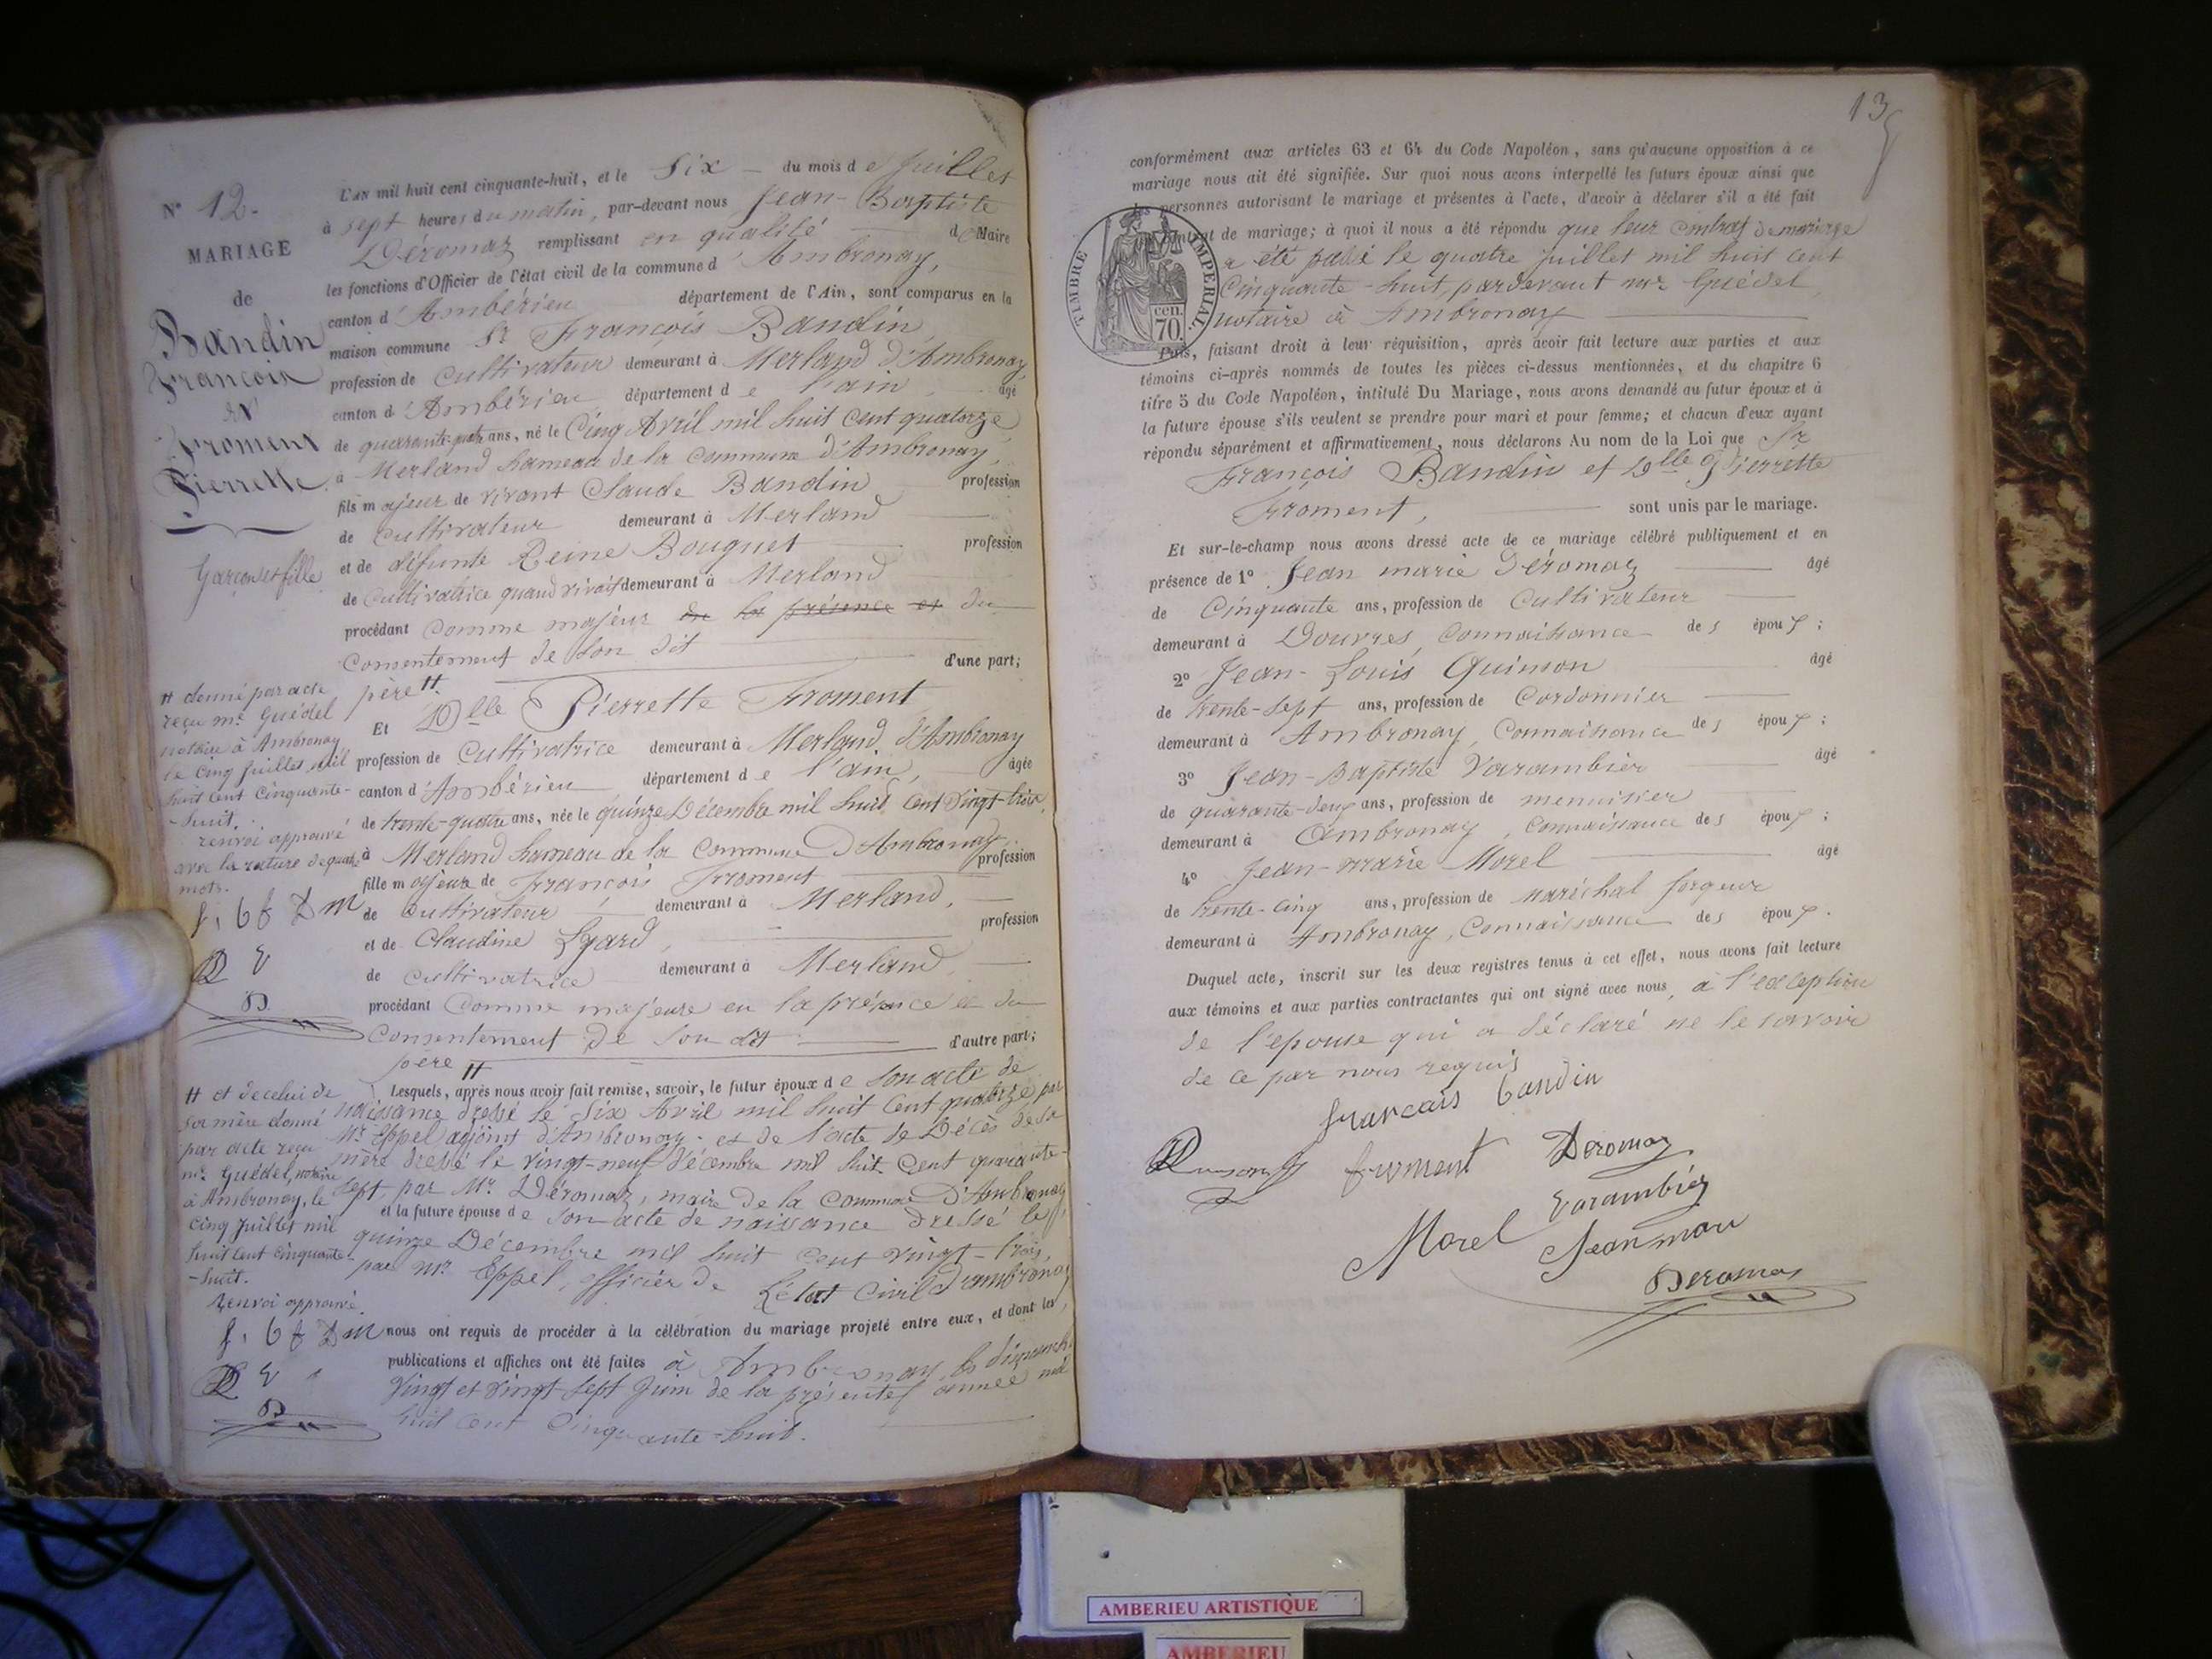 N° 12.
MARIAGE
de
Bandin
François
et
Froment
Pierrette
Garçon et fille
L'AN mil huit cent cinquante-huit, et le Six du mois de Juillet
à sept heures du matin, par-devant nous Jean-Baptiste
Déromaz remplissant en qualité de Maire
les fonctions d'Officier de l'état civil de la commune d'Ambronay,
canton d'Ambérieu département de l'Ain, sont comparus en la
maison commune Sr François Bandin
profession de Cultivateur demeurant à Merland d'Ambronay
canton d'Ambérieu département de l'ain, âgé
de quarante-quatre ans, né le Cinq Avril mil huit cent quatorze
à Merland hameau de la Commune d'Ambronay,
fils majeur de vivant Claude Bandin profession
de Cultivateur demeurant à Merland
et de défunte Reine Bouquet profession
de Cultivatrice quand vivait demeurant à Merland
procédant comme majeur de la présence et du
Consentement de son dit d'une part;
père #
# donné par acte
reçu me Guédel
notaire à Ambronay
le cinq Juillet mil
huit cent cinquante-
-huit.
renvoi approuvé
avec la rature de quatre
mots.
f. b f D m
D V
D
Et Dlle Pierrette Froment
profession de Cultivatrice demeurant à Merland d'Ambronay
canton d'Ambérieu département de l'ain, âgée
de trente-quatre ans, née le quinze Décembre mil huit cent vingt-trois,
à Merland hameau de la Commune d'Ambronay,
fille majeure de François Froment profession
de Cultivateur demeurant à Merland,
et de Claudine Lyard, profession
de Cultivatrice demeurant à Merland
procédant Comme majeure en la présence et du
Consentement de son dit d'autre part;
père #
# et de celui de
sa mère donné
par acte reçu
me Guédel, notaire
à Ambronay, le
cinq Juillet mil
huit cent cinquante-
-huit.
Renvoi approuvé.
f. b f D m
D V
D
Lesquels, après nous avoir fait remise, savoir, le futur époux de son acte de
naissance dressé le Six Avril mil huit cent quatorze par
Mr Eppel adjoint d'Ambronay; et de l'acte de Décès de sa
mère dressé le vingt-neuf Décembre mil huit cent quarante-
sept, par Mr Déromaz, maire de la Commune d'Ambronay
et la future épouse de son acte de naissance dressé le
quinze Décembre mil huit cent vingt-trois,
par Mr Eppel, officier de l'état Civil d'ambronay
nous ont requis de procéder à la célébration du mariage projeté entre eux, et dont les
publications et affiches ont été faites à Ambronay les dimanches
vingt et vingt sept Juin de la présente année mil
huit cent cinquante-huit.
13
conformément aux articles 63 et 64 du Code Napoléon, sans qu'aucune opposition à ce
mariage nous ait été signifiée. Sur quoi nous avons interpellé les futurs époux ainsi que
les personnes autorisant le mariage et présentes à l'acte, d'avoir à déclarer s'il a été fait
contrat de mariage; à quoi il nous a été répondu que leur contrat de mariage
a été passé le quatre Juillet mil huit cent
cinquante-huit, pardevant me Guédel,
notaire à Ambronay
TIMBRE IMPERIAL.
70.
cen.
Puis, faisant droit à leur réquisition, après avoir fait lecture aux parties et aux
témoins ci-après nommés de toutes les pièces ci-dessus mentionnées, et du chapitre 6
titre 5 du Code Napoléon, intitulé Du Mariage, nous avons demandé au futur époux et à
la future épouse s'ils veulent se prendre pour mari et pour femme; et chacun d'eux ayant
répondu séparément et affirmativement, nous déclarons Au nom de la Loi que Sr
François Bandin et Dlle Pierrette
Froment, sont unis par le mariage.
Et sur-le-champ nous avons dressé acte de ce mariage célébré publiquement et en
présence de 1° Jean marie Déromaz âgé
de Cinquante ans, profession de Cultivateur
demeurant à Douvres, Connaissance des époux;
2° Jean-Louis Quinson âgé
de trente-sept ans, profession de Cordonnier
demeurant à Ambronay, Connaissance des époux;
3° Jean-Baptiste Varambier âgé
de quarante-deux ans, profession de menuisier
demeurant à Ambronay, Connaissance des époux;
4° Jean-Marie Morel âgé
de trente-cinq ans, profession de maréchal forgeur
demeurant à Ambronay, Connaissance des époux.
Duquel acte, inscrit sur les deux registres tenus à cet effet, nous avons fait lecture
aux témoins et aux parties contractantes qui ont signé avec nous, à l'exception
de l'épouse qui a déclaré ne le savoir
de ce par nous requis
francais bandin
Quinson froment Deromaz
Varambier
Morel Jean mari
Deromas
AMBERIEU ARTISTIQUE
AMBERIEU